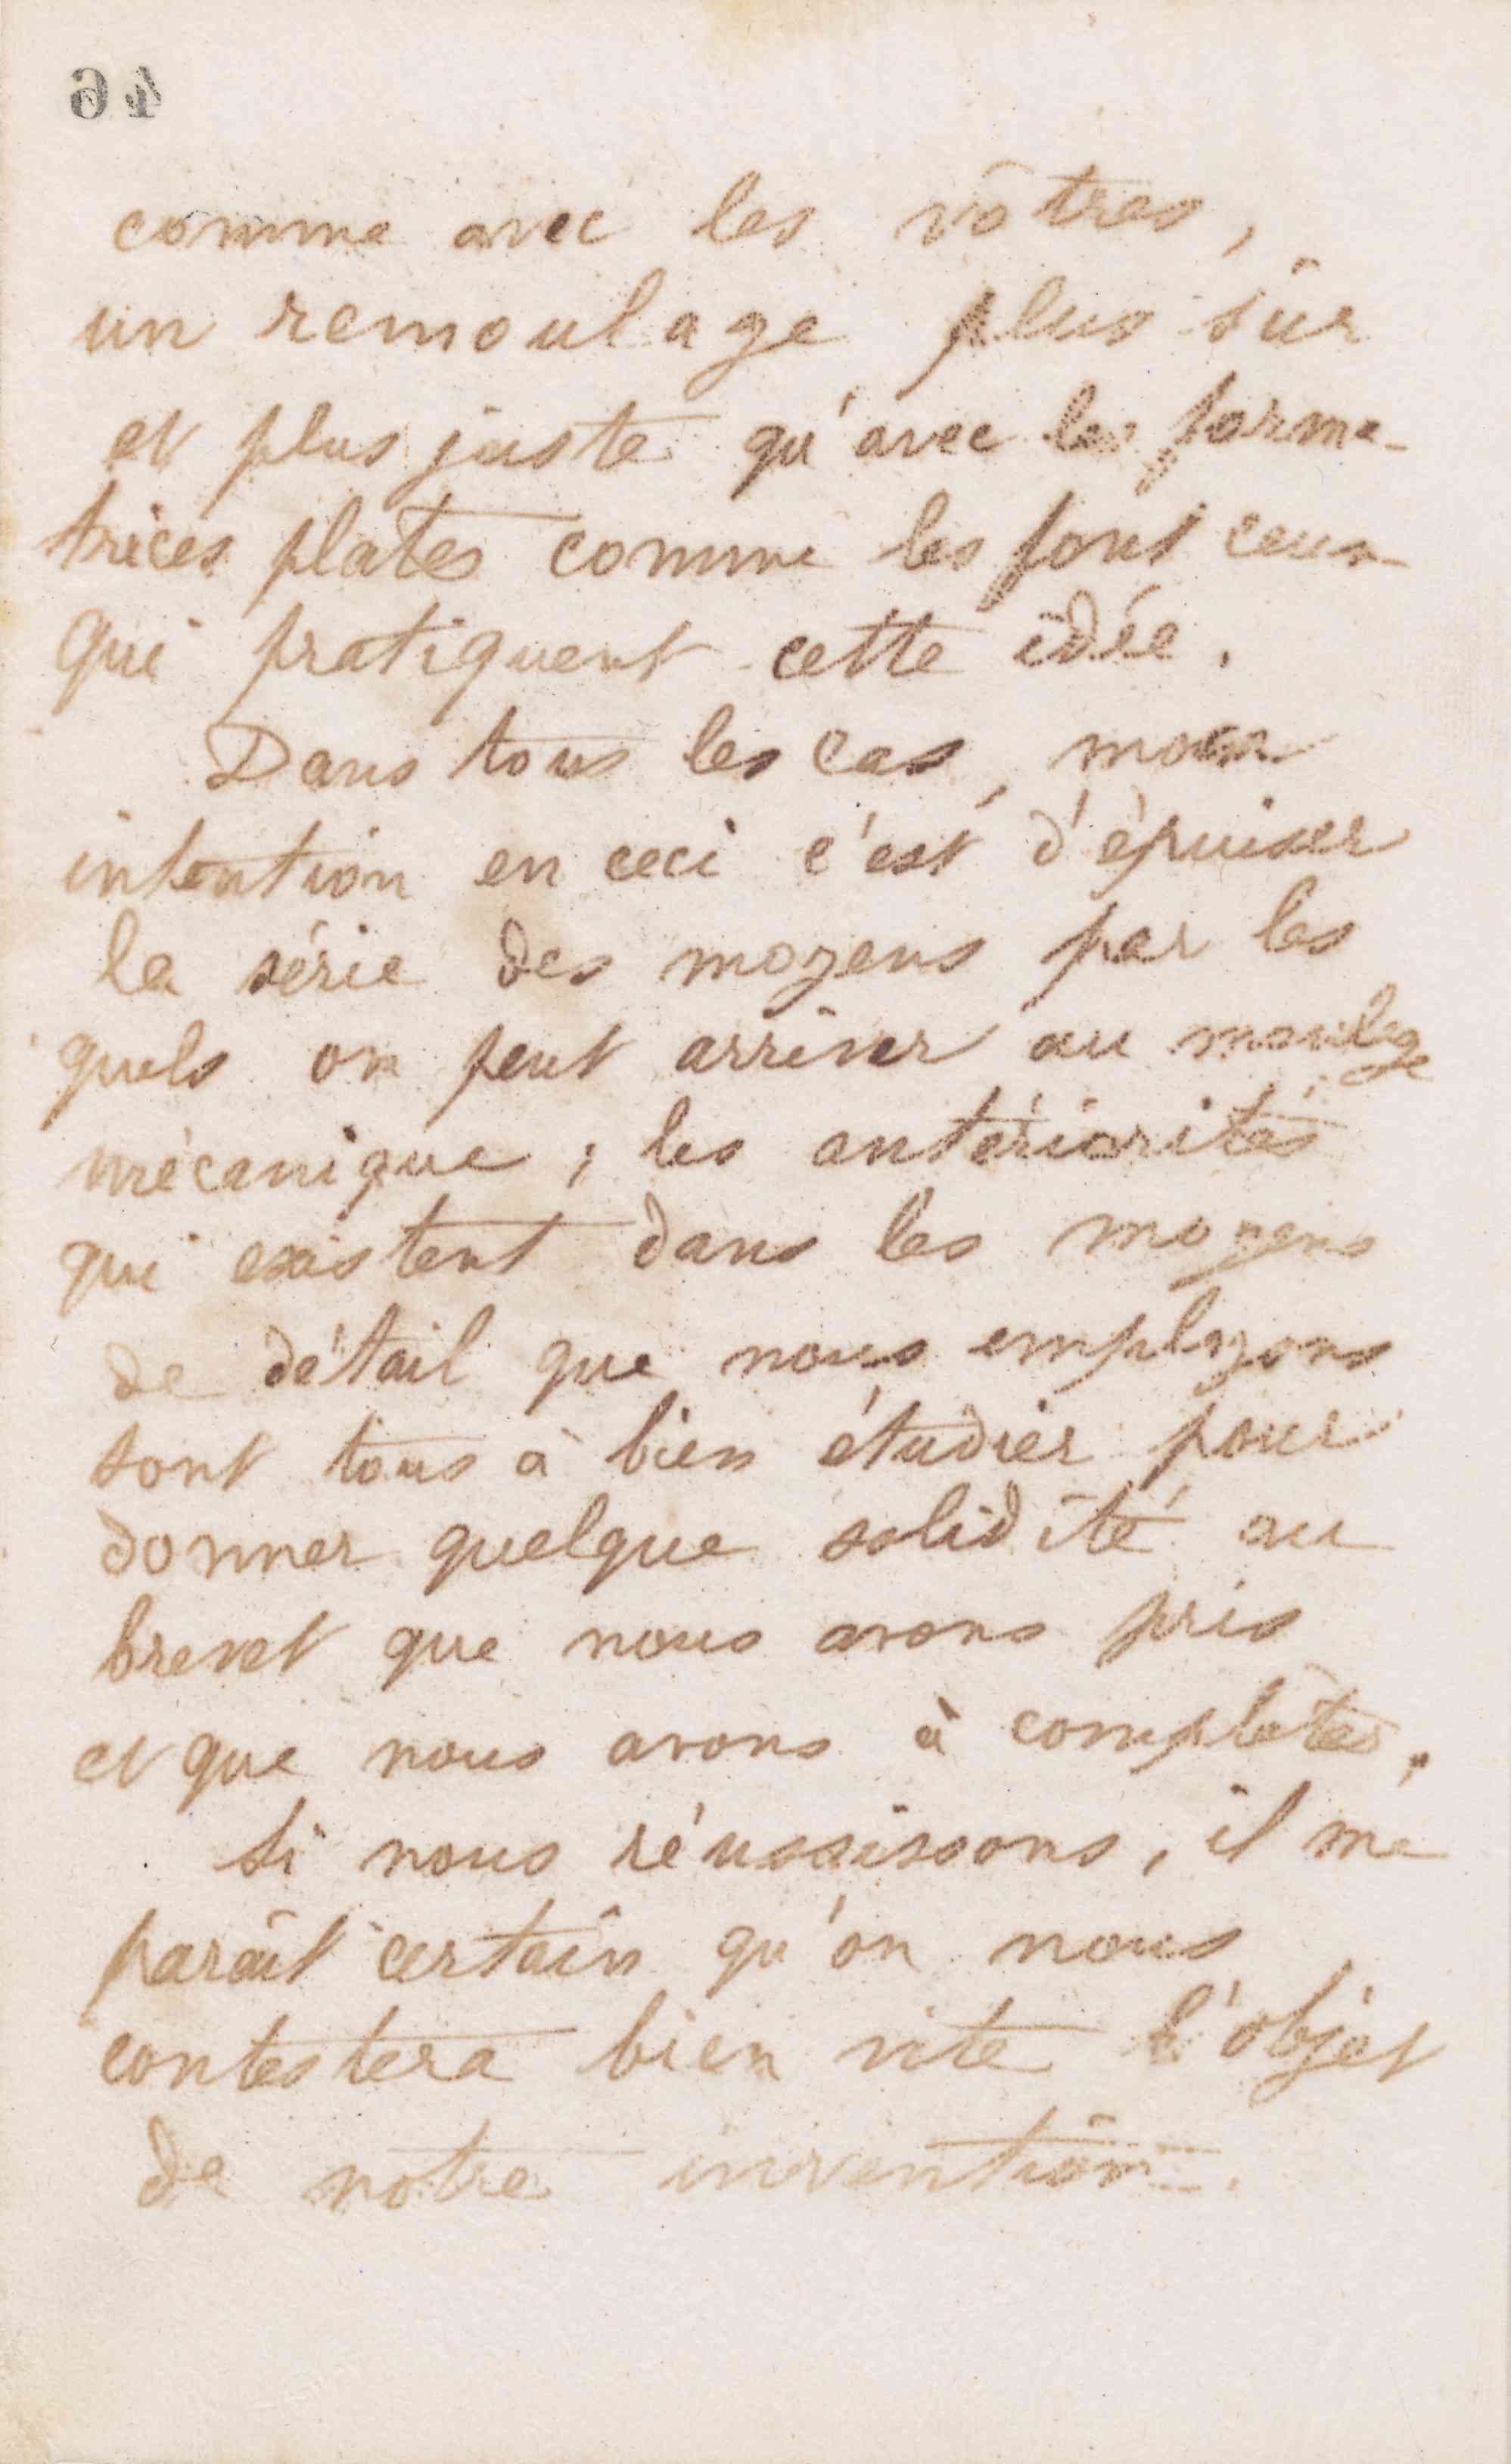 46
comme avec les vôtres,
un remoulage plus sûr
et plus juste qu'avec les forma-
trices plates comme les font ceux
qui pratiquent cette idée.
Dans tous les cas, mon
intention en ceci c'est d'épuiser
la série des moyens par les
quels on peut arriver au moulage
mécanique ; les antériorités
qui existent dans les moyens
de détail que nous employons
sont tous à bien étudier pour
donner quelque solidité au
brevet que nous avons pris
et que nous avons à compléter.
Si nous réussissons, il me
paraît certain qu'on nous
contestera bien vite l'objet
de notre invention.